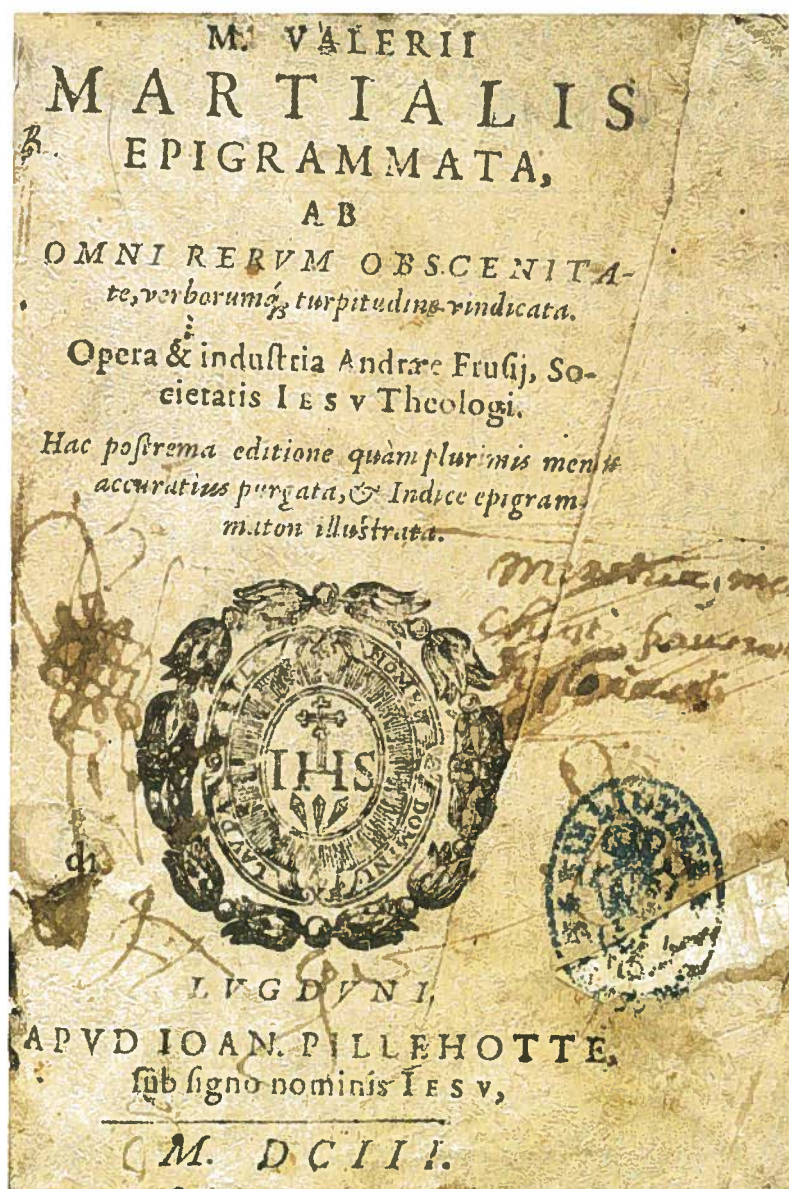 M. VALERII
MARTIALIS
EPIGRAMMATA,
AB
OMNI RERVM OBSCENITA-
te, verborumq́; turpitudine vindicata.
Opera & induſtria Andreæ Fruſij, So-
cietatis IESV Theologi.
Hac poſtrema editione quàm plurimis mendis
accuratius purgata, & Indice epigram-
maton illuſtrata.
LAVDABILE NOMEN DOMINI
IHS
LVGDVNI,
APVD IOAN. PILLEHOTTE,
ſub ſigno nominis IESV,
M. DCIII.